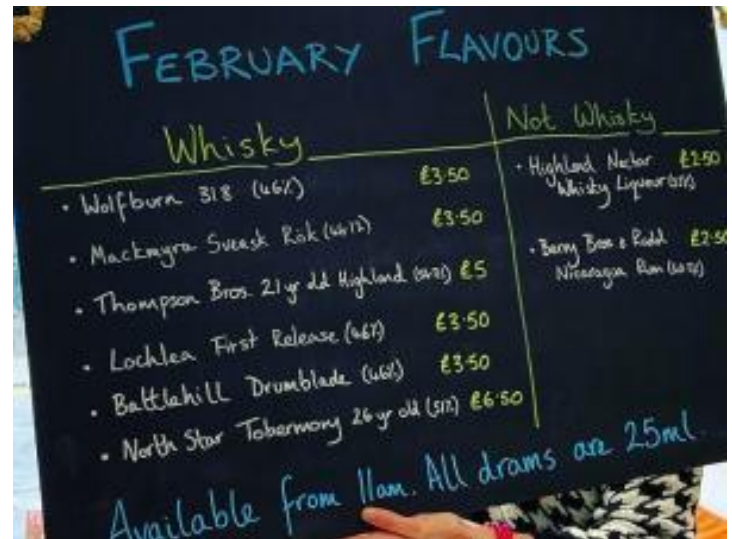 FEBRUARY FLAVOURS
Whisky
• Wolfburn 318 (46%) £3.50
• Mackmyra Svensk Rök £3.50
• Thompson Bros. 21 yr old Highland £5
• Lochlea First Release (46%) £3.50
• Battlehill Drumblade (46%) £3.50
• North Star Tobermory 26 yr old (51%) £6.50
Not Whisky
• Highland Nectar £2.50
Whisky Liqueur
• Berry Bros & Rudd £2.50
Nicaragua Rum
Available from 11am. All drams are 25ml.